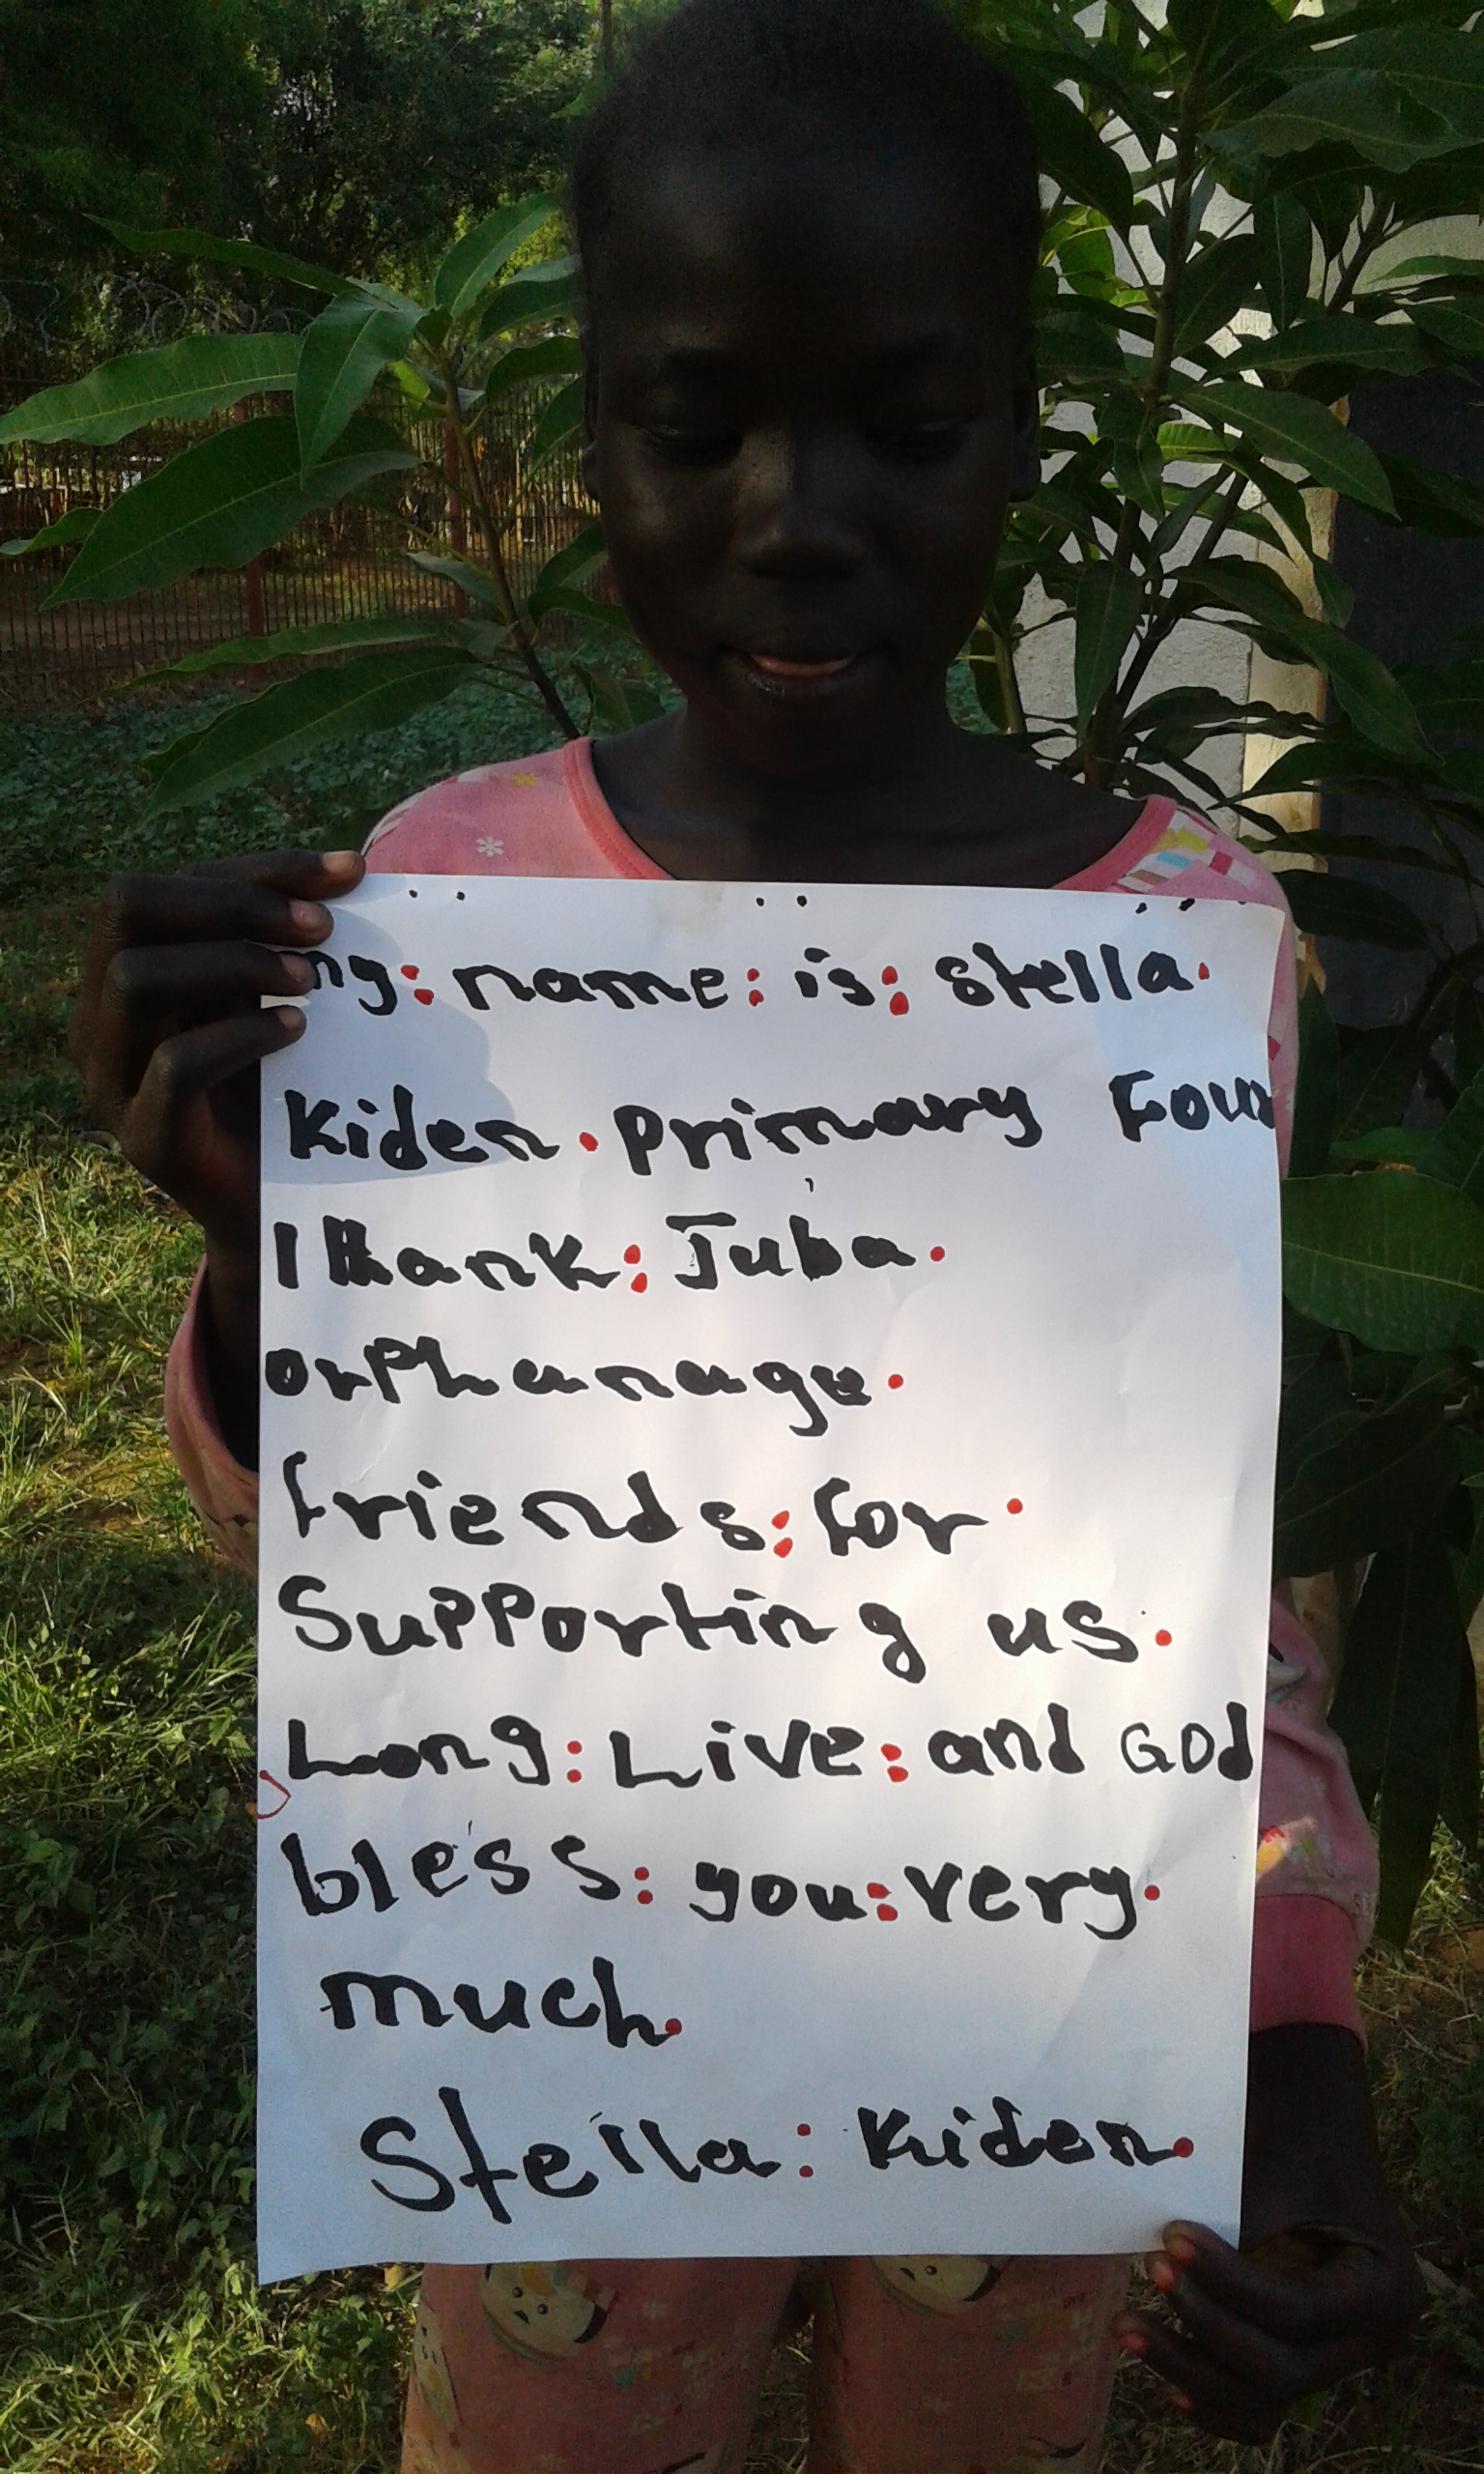 my: name: is: stella.
Kiden. Primary Four
I thank: Juba.
orphanage.
friends: for.
Supporting us.
Long: Live: and GOd
bless: you: very.
much.
Stella: Kiden.